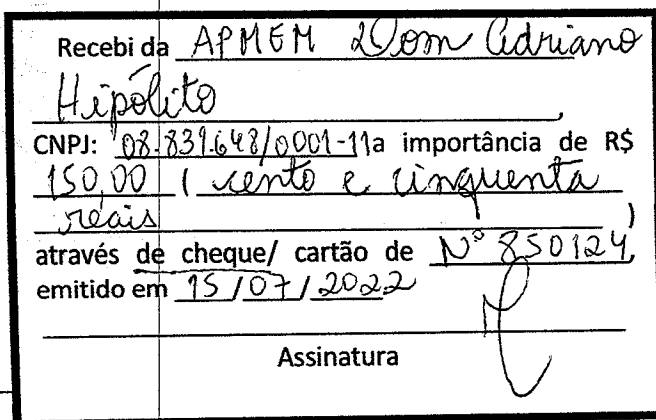 Recebi da APMEM Dom Adriano
Hipólito,
CNPJ: 08.839.648/0001-11 a importância de R$
150,00 ( cento e cinquenta
reais )
através de cheque/ cartão de Nº 850124,
emitido em 15/07/2022
Assinatura